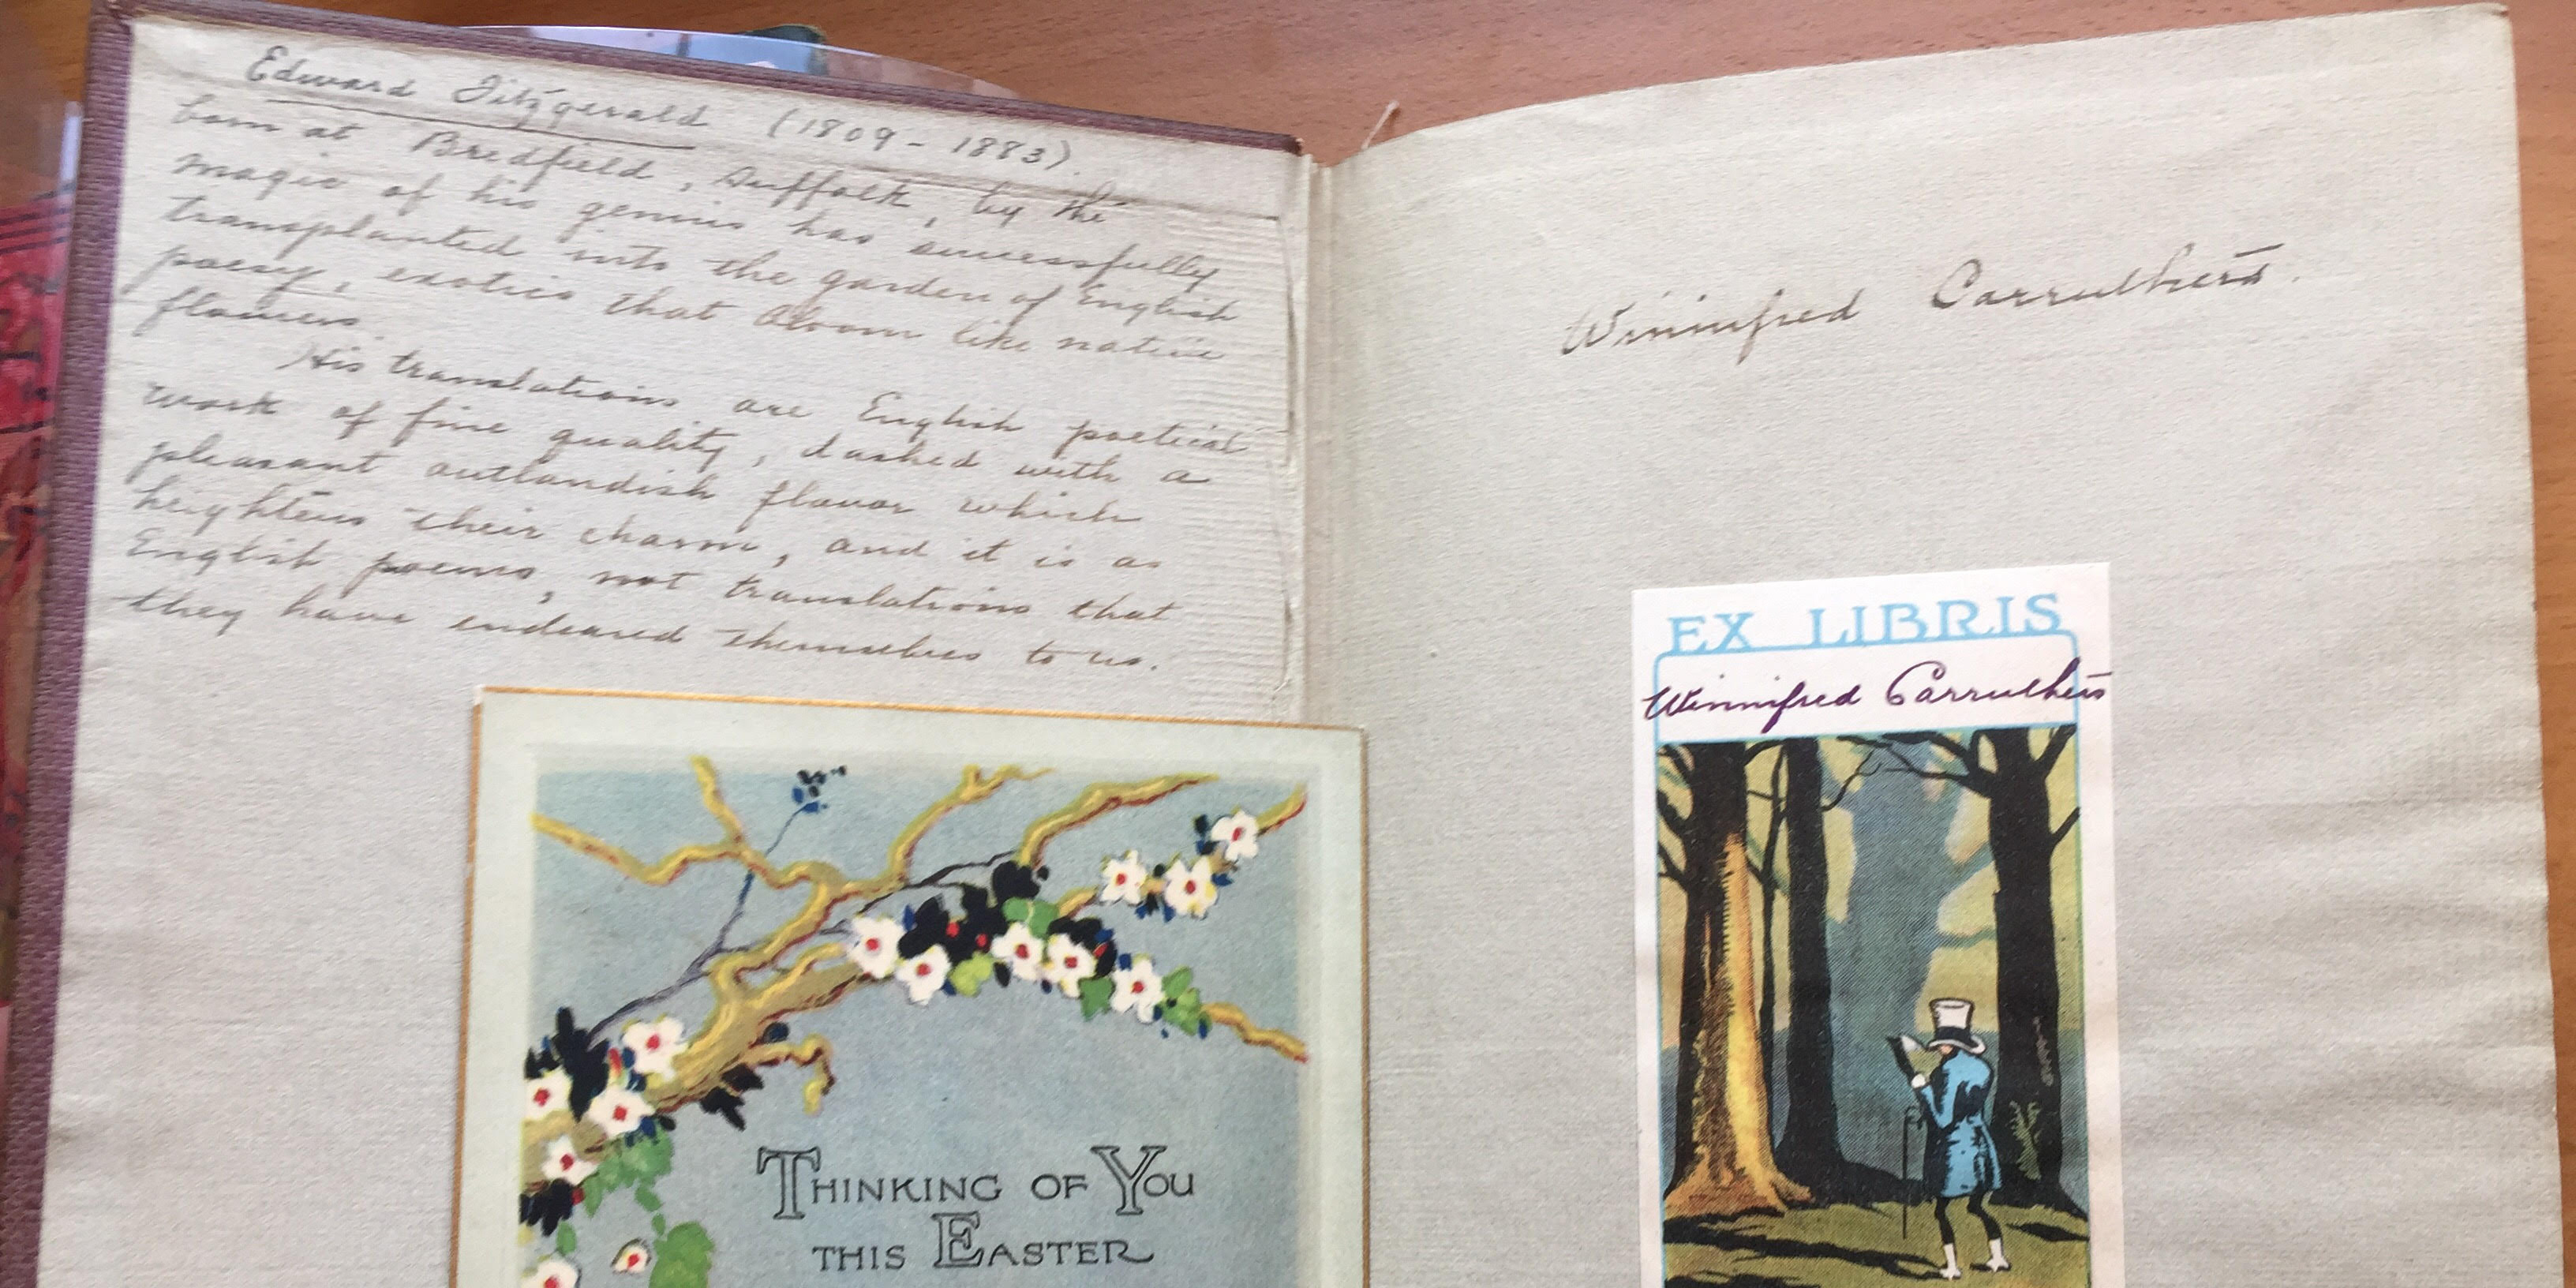 Edward Fitzgerald (1809 - 1883).
born at Bredfield, Suffolk, by the
magic of his genius has successfully
transplanted into the garden of English
poesy, exotics that bloom like native
flowers.
His translations are English poetical
work of fine quality, dashed with a
pleasant outlandish flavor which
heightens their charm, and it is as
English poems, not translations that
they have endeared themselves to us.
THINKING OF YOU
THIS EASTER
Winnifred Carruthers.
EX LIBRIS
Winnifred Carruthers